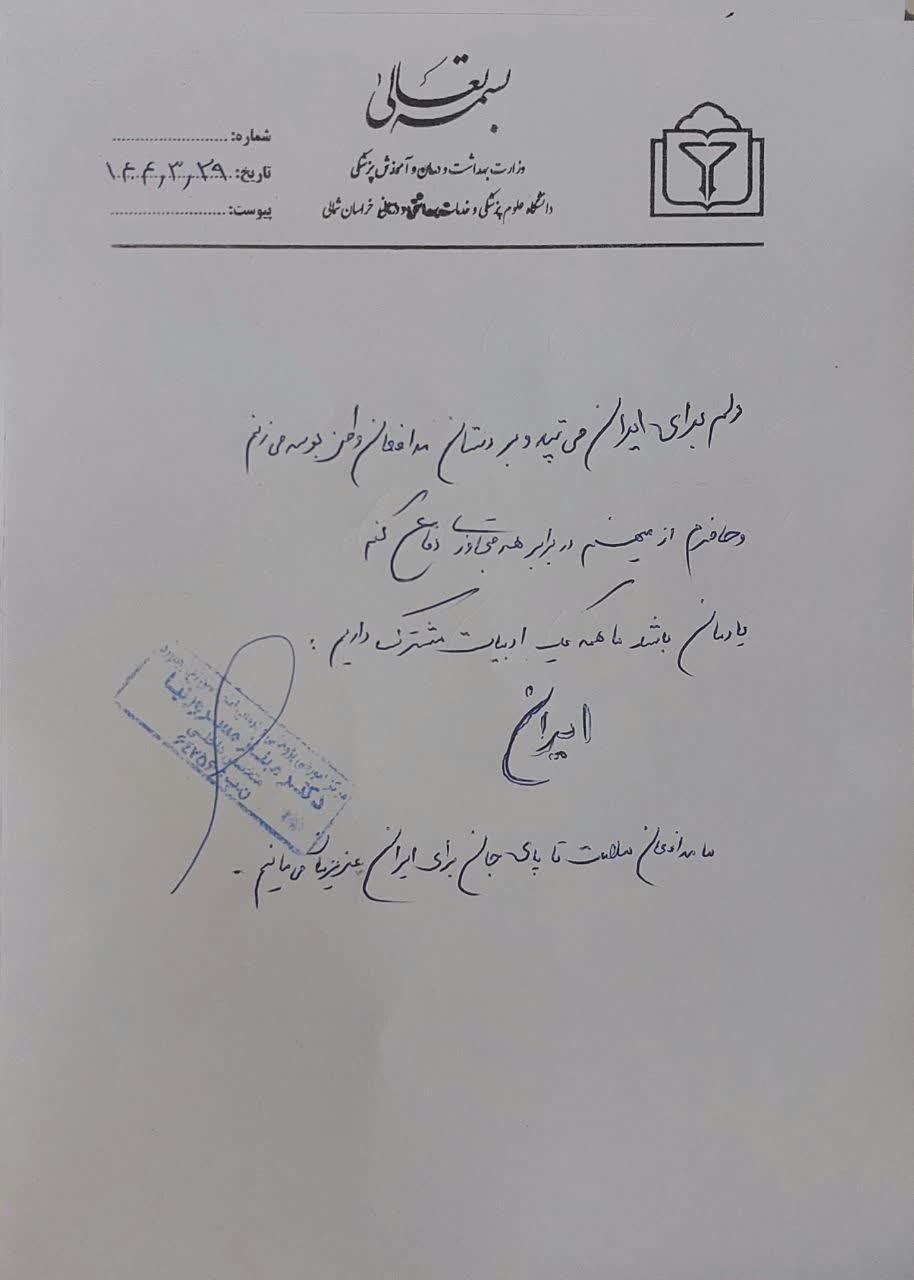 بسمه تعالی
وزارت بهداشت و درمان و آموزش پزشکی
دانشگاه علوم پزشکی و خدمات بهداشتی و درمانی خراسان شمالی
شماره:
تاریخ: ۱۴۰۴,۳,۲۹
پیوست:
دلم برای ایران می تپد و بر دستان مدافعان وطن بوسه می زنم
و حاضرم از میهنم در برابر هر تجاوزی دفاع کنم
یادمان باشد ما همه یک ادبیات مشترک داریم :
ایران
ما مدافعان سلامت تا پای جان برای ایران عزیزمان می مانیم .
دکتر